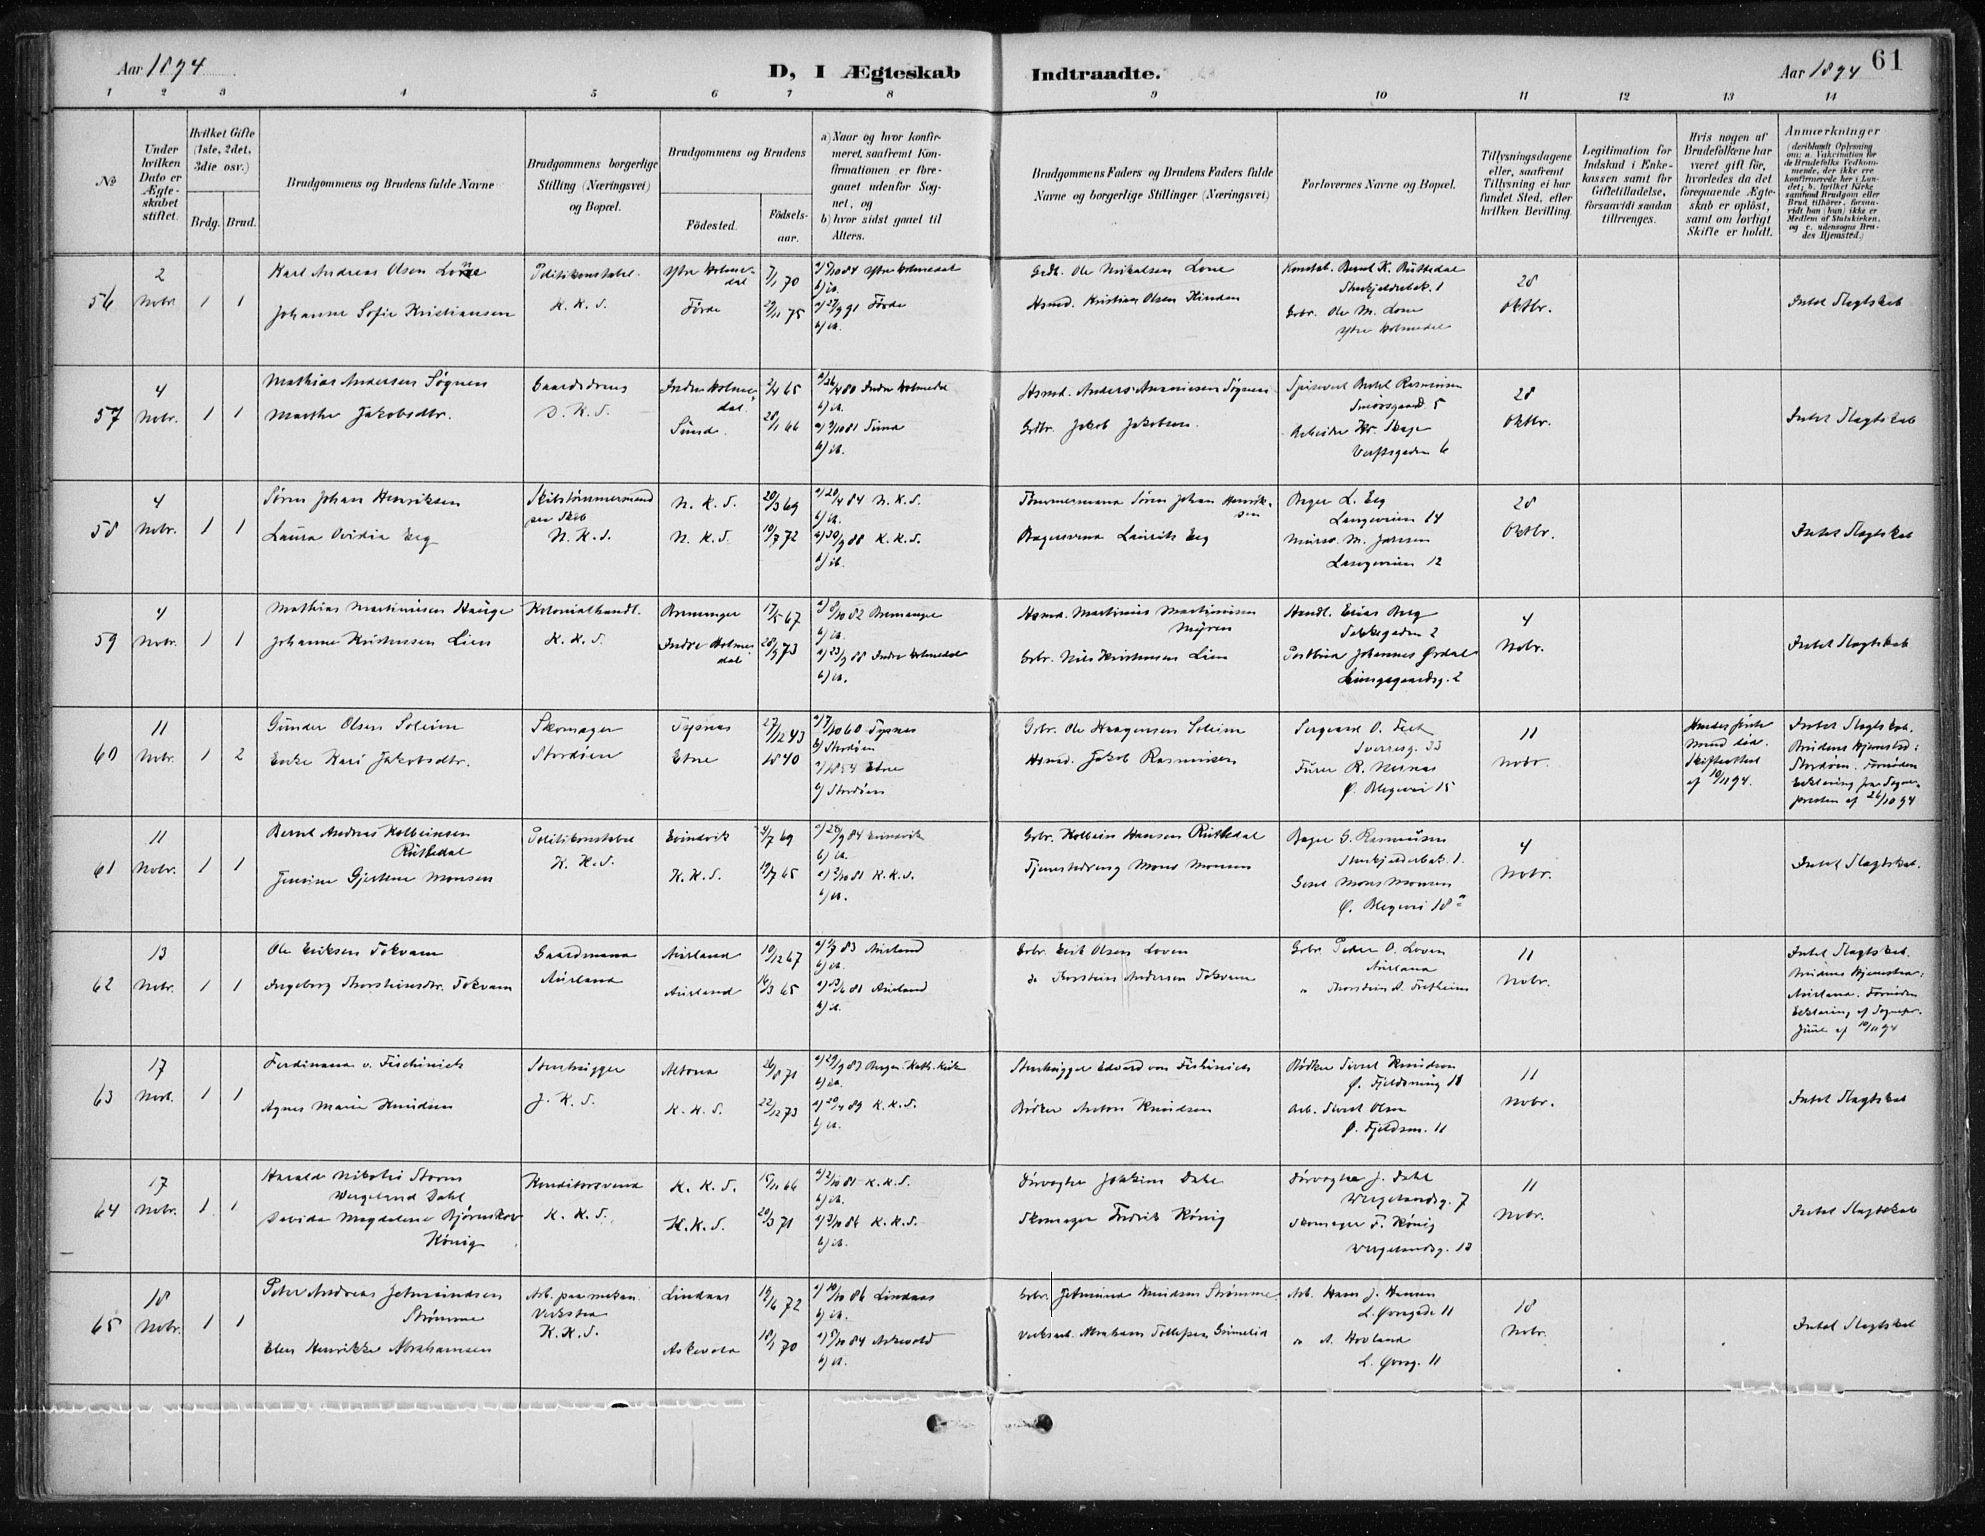 Aar 1894
D, I Ægteskab Indtraadte.
Aar 1894
61
1 2 3 4 5 6 7 8 9 10 11 12 13 14
No
Under hvilken Dato er Ægteskabet stiftet.
Hvilket Gifte (1ste, 2det, 3die osv.)
Brdg. Brud.
Brudgommens og Brudens fulde Navne
Brudgommens borgerlige Stilling (Næringsvei) og Bopæl.
Brudgommens og Brudens
Fødested.
Fødselsaar.
a) Naar og hvor konfirmeret, saafremt Konfirmationen er foregaaet udenfor Sognet, og
b) hvor sidst gaaet til Alters.
Brudgommens Faders og Brudens Faders fulde Navne og borgerlige Stillinger (Næringsvei)
Forlovernes Navne og Bopæl.
Tillysningsdagene eller, saafremt Tillysning ei har fundet Sted, efter hvilken Bevilling.
Legitimation for Indskud i Enkekassen samt for Giftetilladelse, forsaavidt saadan tiltrænges.
Hvis nogen af Brudefolkene har været gift før, hvorledes da det foregaaende Ægteskab er opløst, samt om lovligt Skifte er holdt.
Anmærkninger (deriblandt Oplysning om: a. Vakcination for de Brudefolks Vedkommende, der ikke ere konfirmerede her i Landet; b. hvilket Kirkesamfund Brudgom eller Brud tilhører, forsaavidt han (hun) ikke er Medlem af Statskirken, og c. udensogns Brudes Hjemsted.)
56 2 Novbr. 1 1
Karl Andreas Olsen Lone
Johanne Sofie Kristiansen
Politikonstabel
K. K. S.
Ytre Holmedal 7/1 70
Førde 29/11 75
a) 5/10 84 Ytre Holmedal
b) ib.
a) 27/9 91 Førde
b) ib.
Grdb. Ole Nikolsen Lone
Hsmd. Kristian Olsen Hinden
Konstab. Bernt K. Rutledal
Storkjelderbak. 1
Grbr. Ole M. Lone
Ytre Holmedal
28 Oktbr.
Intet Slagtskab
57 4 Novbr. 1 1
Mathias Andersen Søgnen
Marthe Jakobsdtr.
Gaardsdreng
D. K. S.
Indre Holmedal 2/4 65
Sund 28/1 66
a) 26/4 80 Indre Holmedal
b) ib.
a) 2/10 81 Sund
b) ib.
Grdbr. Jakob Jakobsen
Spisevert Bertel Rasmussen
Smørsgaard. 5
Arbeider
Verftsgaden 6
28 Oktbr.
Intet Slagtskab
58 4 Novbr. 1 1
Søren Johan Henriksen
Laura Ovidia Eeg
Skibstømmermand
N. K. S.
N. K. S. 20/3 69
N. K. S. 10/7 72
a) 20/4 84 N. K. S.
b) ib.
a) 30/9 88 K. K. S.
b) ib.
Tømmermand Søren Johan Henriksen
Bagersvend Laurits Eeg
Bager L. Eeg
Langeveien 14
Murer M. Jansen
Langeveien 12
28 Oktbr.
Intet Slagtskab
59 4 Novbr. 1 1
Mathias Martinusen Hauge
Johanne Kristensen Lien
Kolonialhandl.
K. K. S.
Bremanger 17/5 67
Indre Holmedal 28/9 73
a) 8/10 82 Bremanger
b) ib.
a) 23/9 88 Indre Holmedal
b) ib.
Hsmd. Martinus Martinusen Myren
Grbr. Nils Kristensen Lien
Handl. Elias Berg
2
Postbud Johannes Ørdal
Kongsgaardsg. 2
4 Novbr.
Intet Slagtskab
60 11 Novbr. 1 2
Gunder Olsen Soleim
Enke Kari Jakobsdtr.
Skomager
Stordøen
Tysnes 27/12 43
Etne 1840
a) 7/10 60 Tysnes
b) Stordøen
a) 1854 Etne
b) Stordøen
Grbr. Ole Haagensen Soleim
Hsmd. Jakob Rasmussen
Sergeant O. Tveit
Sverresg. 33
Furer R. Nesnes
Ø. Blegevei 15
11 Novbr.
Hendes første Mand død. Skifteattest af 10/11 94.
Intet Slagtskab. Brudens Hjemsted: Stordøen. Fornøden Erklæring fra Sognepresten af 26/10 94
61 11 Novbr. 1 1
Bernt Andreas Kolbeinsen Rutledal
Jensine Gjertine Monsen
Politikonstabel
K. K. S.
Evindvik 4/7 69
K. K. S. 19/7 65
a) 28/9 84 Evindvik
b) ib.
a) 2/10 81 K. K. S.
b) ib.
Grbr. Kolbein Hansen Rutledal
Tjenestedreng Mons Monsen
Bager G. Rasmussen
Storkjelderbak. 1.
Gesel Mons Monsen
Ø. Blegevei 18 a
4 Novbr.
Intet Slagtskab.
62 13 Novbr. 1 1
Ole Eriksen Tokvam
Ingeborg Thorsteinsdtr. Tokvam
Gaardmand
Aurland
Aurland 10/12 67
Aurland 16/3 65
a) 1/7 83 Aurland
b) ib.
a) 13/6 81 Aurland
b) ib.
Grbr. Erik Olsen Loven
do Thorstein Andersen Tokvam
Grbr. Peder O. Loven
Aurland
" Thorstein A. Fretheim
11 Novbr.
Intet Slagtskab. Brudens Hjemsted: Aurland. Fornøden Erklæring af Sognepr. Juul af 10/11 94
63 17 Novb. 1 1
Ferdinand v. Fischinich
Agnes Marie Knudsen
Stenhugger
J. K. S.
Altona 26/8 71
K. K. S. 22/12 73
a) 29/9 87 Bergen. Kath. Kirke
b) ib.
a) 28/4 89 K. K. S.
b) ib.
Stenhugger Edvard von Fishinich
Bødker Anton Knudsen
Bødker Sivert Knudsen
Ø. Fjeldsmug 18
Arb. Sivert Olsen
Ø. Fjeldsm. 11
11 Novbr.
Intet Slagtskab
64 17 Novbr. 1 1
Harald Nikolai Storm Wergeland Dahl
Davida Magdalene Bjørnskov König
Konditorsvend
K. K. S.
K. K. S. 19/11 66
K. K. S. 20/3 71
a) 2/10 81 K. K. S.
b) ib.
a) 3/10 86 K. K. S.
b) ib.
Dørvogter Joakim Dahl
Skomager Fredrik König
Dørvogter J. Dahl
Wergelandsg. 7
Skomager F. König
Wergelandsg. 13
11 Novbr.
Intet Slagtskab
65 18 Novbr. 1 1
Peter Andreas Jetmundsen Strømme
Elen Henrikke Abrahamsen
Arb. paa mekan. Verksted
K. K. S.
Lindaas 19/6 72
Askevold 18/1 70
a) 10/10 86 Lindaas
b) ib.
a) 5/10 84 Askevold
b) ib.
Grbr. Jetmund Knudsen Strømme
Verksarb. Abraham Tollefsen Grimelid
Arb. Hans J. Hansen
L. Øvregade 11
" A. Hovland
L. Øvreg. 11
18 Novbr.
Intet Slagtskab